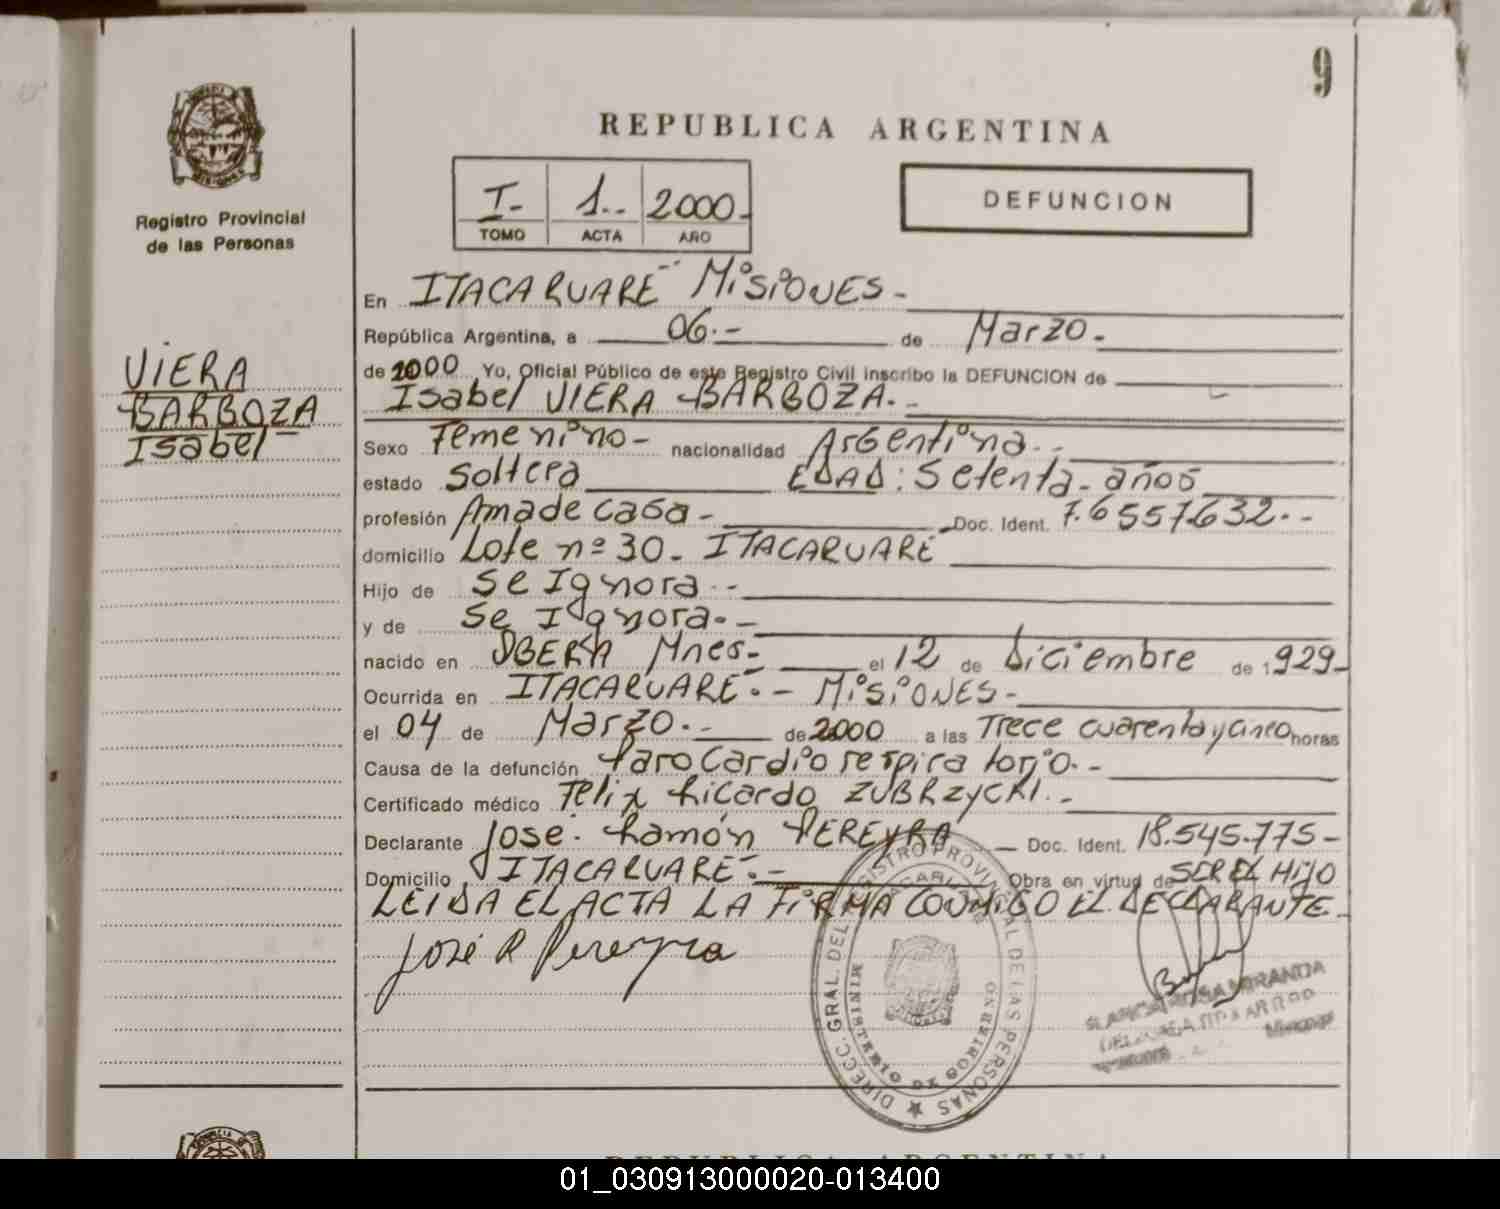 9
REPUBLICA ARGENTINA
I- 1.- 2000-
TOMO ACTA AÑO
DEFUNCION
Registro Provincial
de las Personas
VIERA
BARBOZA
Isabel
En ITACARUARE Misiones-
República Argentina, a 06.- de Marzo.-
de 2000 Yo, Oficial Público de este Registro Civil inscribo la DEFUNCION de
Isabel VIERA BARBOZA.-
Sexo Femenino- nacionalidad Argentina.-
estado Soltera EDAD: Setenta- años
profesión Ama de casa- Doc. Ident.
domicilio Lote nº 30- ITACARUARE
Hijo de Se Ignora.-
y de Se Ignora.-
nacido en OBERA Mnes- el 12 de Diciembre de 1929-
Ocurrida en ITACARUARE.- MISIONES-
el 04 de Marzo.- de 2000 a las Trece cuarenta y cinco horas
Causa de la defunción Paro Cardio respiratorio.-
Certificado médico Felix Ricardo ZUBRZYCKI.-
Declarante José Ramón PEREYRA - Doc. Ident. 18.545.775-
Domicilio ITACARUARE.- Obra en virtud de SER EL HIJO
LEIDA EL ACTA LA FIRMA CONMIGO EL DECLARANTE-
José R Pereyra
DIRECC. GRAL. DEL REGISTRO PROVINCIAL DE LAS PERSONAS
MINISTERIO DE GOBIERNO
ROSA MIRANDA
Misiones
REPUBLICA ARGENTINA
01_030913000020-013400